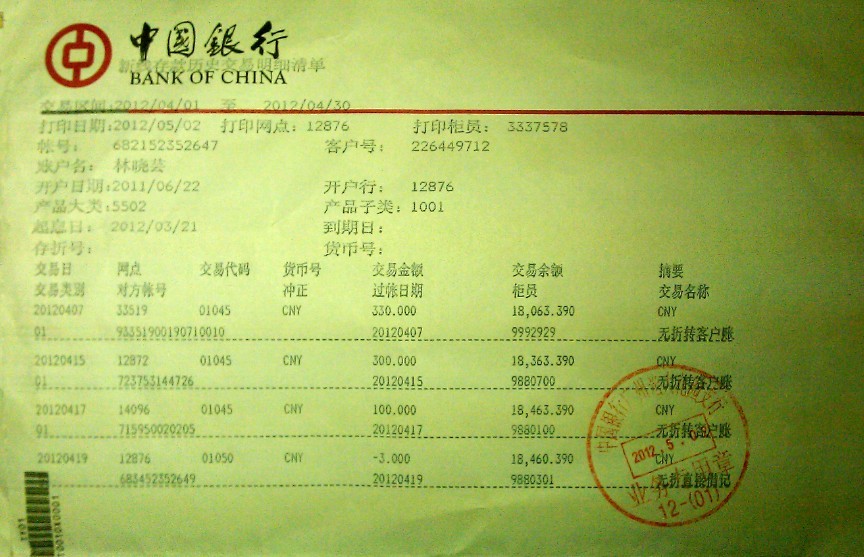 中國銀行
新线存款历史交易明细清单
BANK OF CHINA
交易区间:2012/04/01 至 2012/04/30
打印日期:2012/05/02 打印网点: 12876 打印柜员: 3337578
帐号: 682152352647 客户号: 226449712
账户名: 林晓芸
开户日期:2011/06/22 开户行: 12876
产品大类:5502 产品子类: 1001
起息日: 2012/03/21 到期日:
存折号: 货币号:
交易日 网点 交易代码 货币号 交易金额 交易余额 摘要
交易类别 对方帐号 冲正 过帐日期 柜员 交易名称
20120407 33519 01045 CNY 330.000 18,063.390 CNY
01 93351900190710010 20120407 9992929 无折转客户账
20120415 12872 01045 CNY 300.000 18,363.390 CNY
01 723753144726 20120415 9880700 无折转客户账
20120417 14096 01045 CNY 100.000 18,463.390 CNY
01 715950020205 20120417 9880100 无折转客户账
20120419 12876 01050 CNY -3.000 18,460.390 CNY
683452352649 20120419 9880301 无折直接借记
中国银行广州
2012. 5. 0
业务专用章
12-(01)
TY01